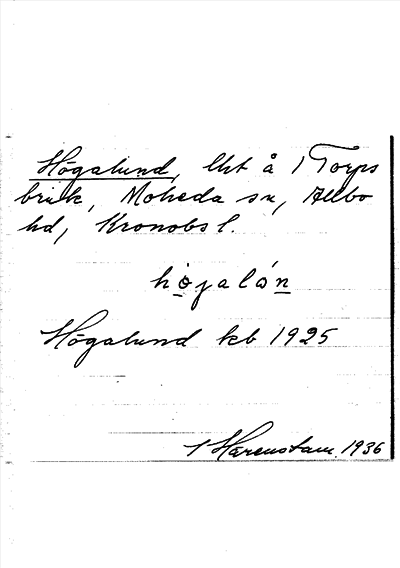 Högalund, lht å 1 Torps
bruk, Moheda sn, Allbo
hd, Kronobs l.
höjalón
Högalund kb 1925
1936